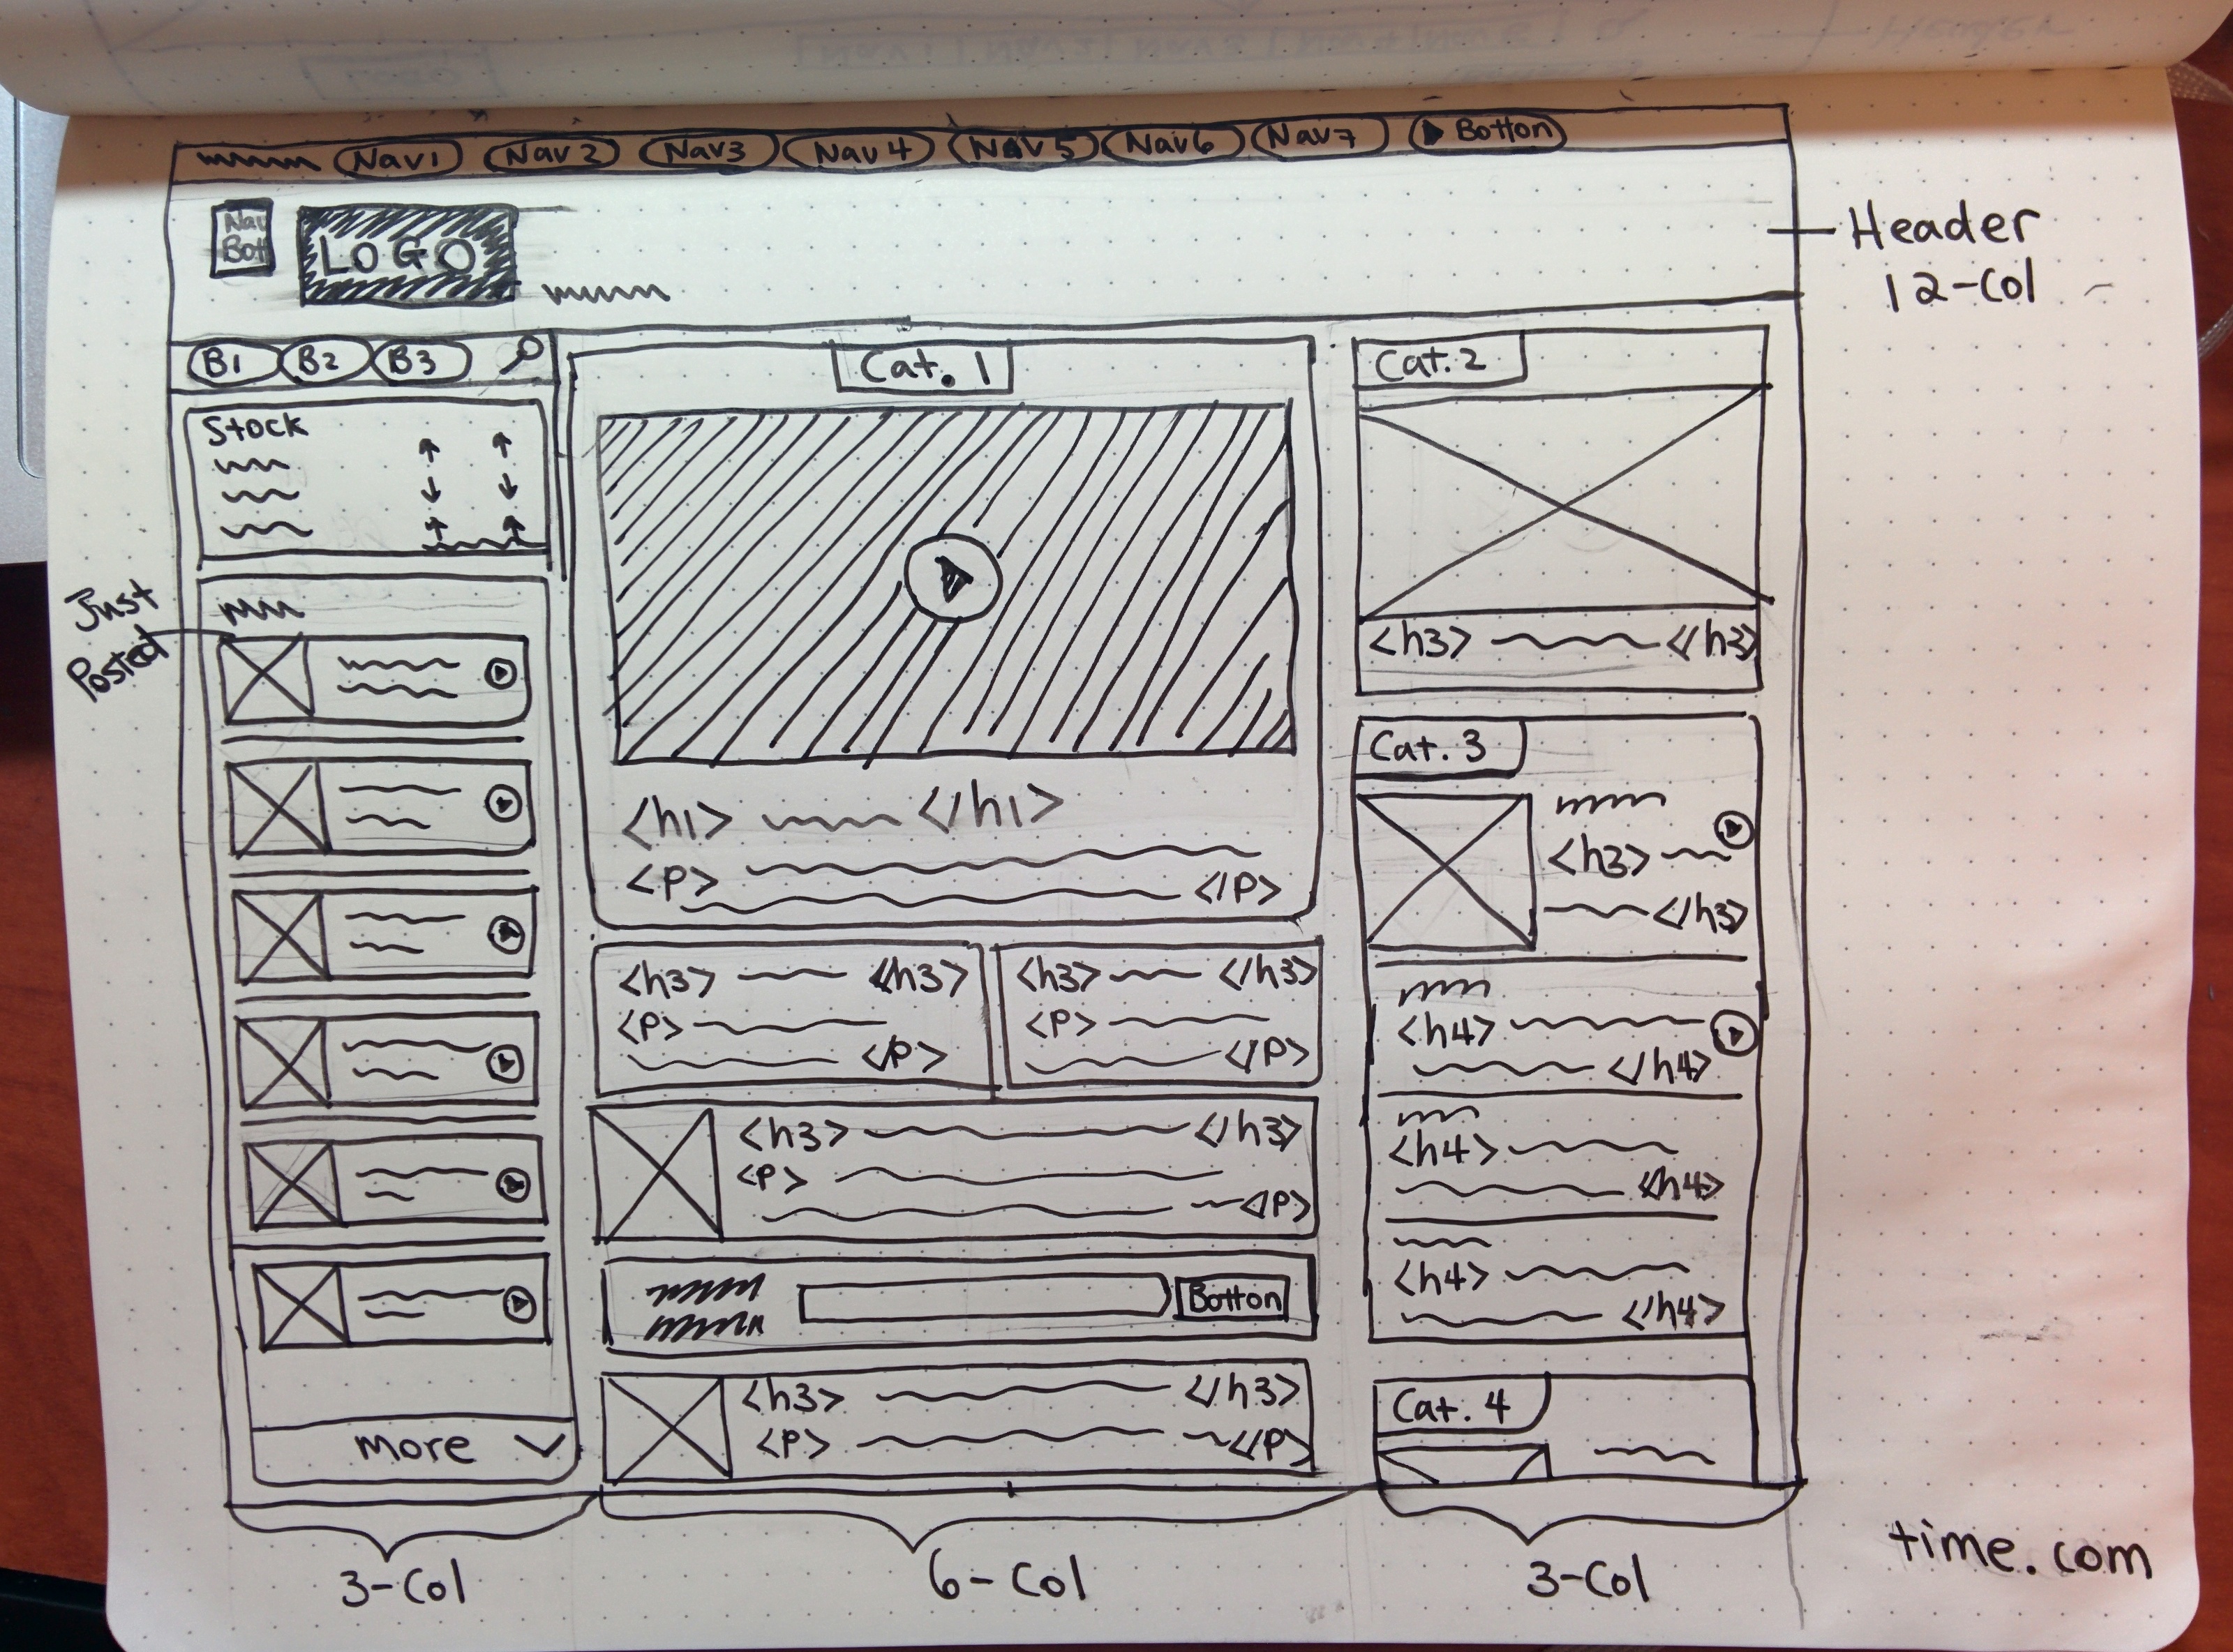 Nav1 Nav 2 Nav3 Nav 4 Nav 5 Nav6 Nav7 Botton
Nav
Bott
LOGO
Header
12-Col
B1 B2 B3
Stock
Just
Posted
more
Cat. 1
<h1> </h1>
<P>
</P>
<h3> </h3>
<P>
</P>
<h3> </h3>
<P>
</P>
<h3> </h3>
<P>
</P>
Botton
<h3> </h3>
<P> </P>
Cat. 2
<h3> </h3>
Cat. 3
<h3>
</h3>
<h4>
</h4>
<h4>
</h4>
<h4>
</h4>
Cat. 4
3-Col
6-Col
3-Col
time.com